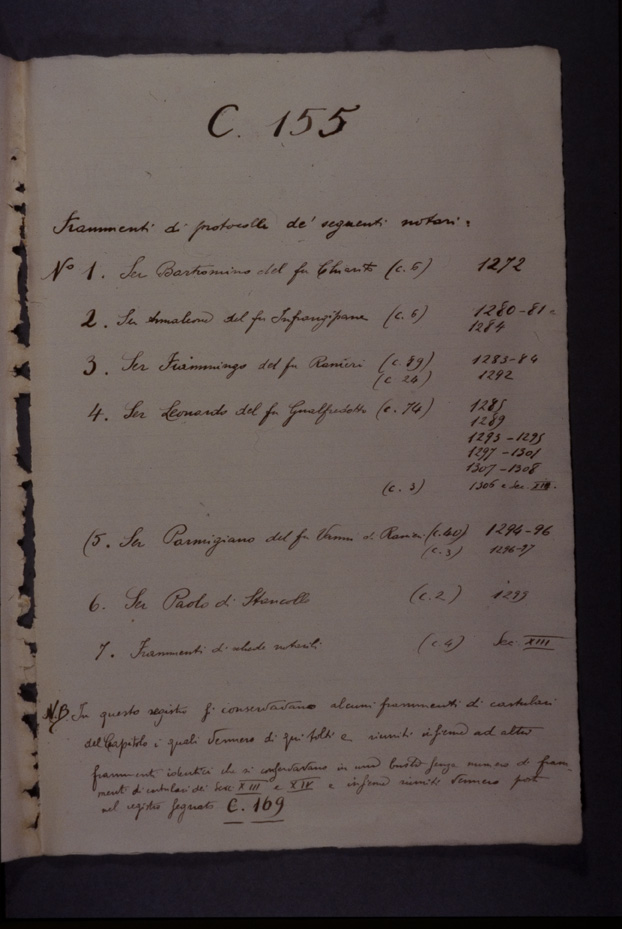 C. 155
Frammenti di protocolli de' seguenti notari:
Nº 1. Ser Bartromino del fu Chiarito (c. 6) 1272
2. Ser del fu Infrangipane (c. 6) 1280-81 =
1284
3. Ser Fiammingo del fu Ranieri (c. 89) 1283-84
(c. 24) 1292
4. Ser Leonardo del fu Gualfredotto (c. 74) 1285
1289
1293-1295
1297-1301
1307-1308
(c. 3) 1306 e Sec.
(5. Ser Parmigiano del fu (c. 40) 1294-96
(c. 3) 1296-97
6. Ser Paolo di Stancollo (c. 2) 1299
7. Frammenti di schede notarili (c. 4) Sec. XIII
N.B. In questo registro si conservavano alcuni frammenti di cartulari
del Capitolo i quali vennero di qui tolti e riuniti insieme ad altri
frammenti identici che si conservavano in una busta senza numero di fram-
menti di cartulari dei Sec. XIII e XIV e insieme riuniti vennero posti
nel registro segnato C. 169